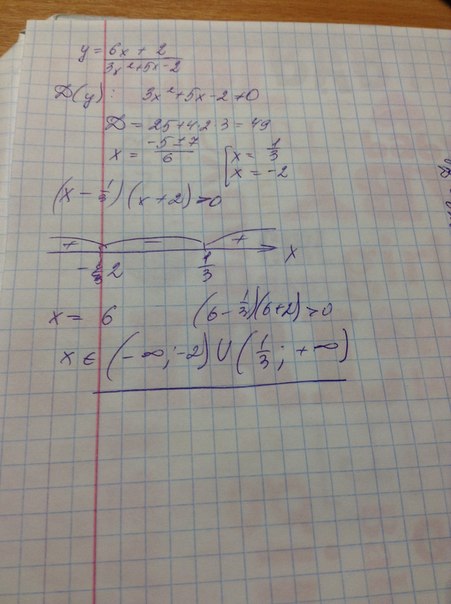 y = 6x + 2 / 3x²+5x-2
D(y): 3x²+5x-2≠0
D = 25+4·2·3 = 49
x = -5±7 / 6 [ x = 1/3
x = -2
(x - 1/3)(x+2)>0
+ - +
-2 1/3 x
x = 6 (6 - 1/3)(6+2)>0
x ∈ (-∞; -2) ∪ (1/3; +∞)